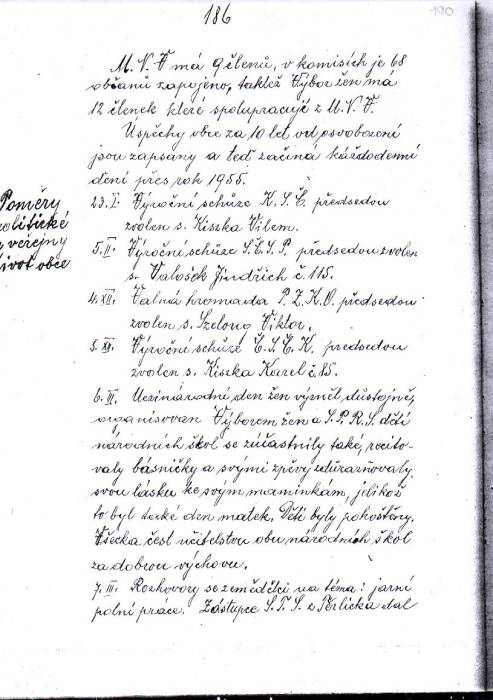 186
190
M.N.V má 9 členů, v komisích je 68
občanů zapojeno, taktéž Výbor žen má
12 členek které spolupracují z M.N.V.
Úspěchy obce za 10 let od osvobození
jsou zapsány a teď začíná každodenní
dění přes rok 1955.
Poměry
politické
a veřejný
život obce
23.I. Výroční schůze K.S.Č. předsedou
zvolen s. Kiszka Vilem.
5.II. Výroční schůze S.Č.S.P. předsedou zvolen
s. Valošek Jindřich č. 115.
4.XII. Valná hromada P.Z.K.O. předsedou
zvolen s. Szelong Viktor.
5. XII. Výroční schůze Č.S.Č.K. předsedou
zvolen s. Kiszka Karel č. 85.
6. III. Mezinárodní den žen vyzněl důstojně,
organisovan Výborem žen a S.P.R.Š. děti
národních škol se zúčastnily také, recito-
valy básničky a svými zpěvy zdůrazňovaly
svou lásku ke svým maminkám, jelikož
to byl také den matek. Děti byly pohoštěny.
Všecka čest učitelstvu obu národních škol
za dobrou výchovu.
7. III. Rozhovory se zemědělci na téma: jarní
polní práce. Zástupce S.T.S. z Těrlicka dal